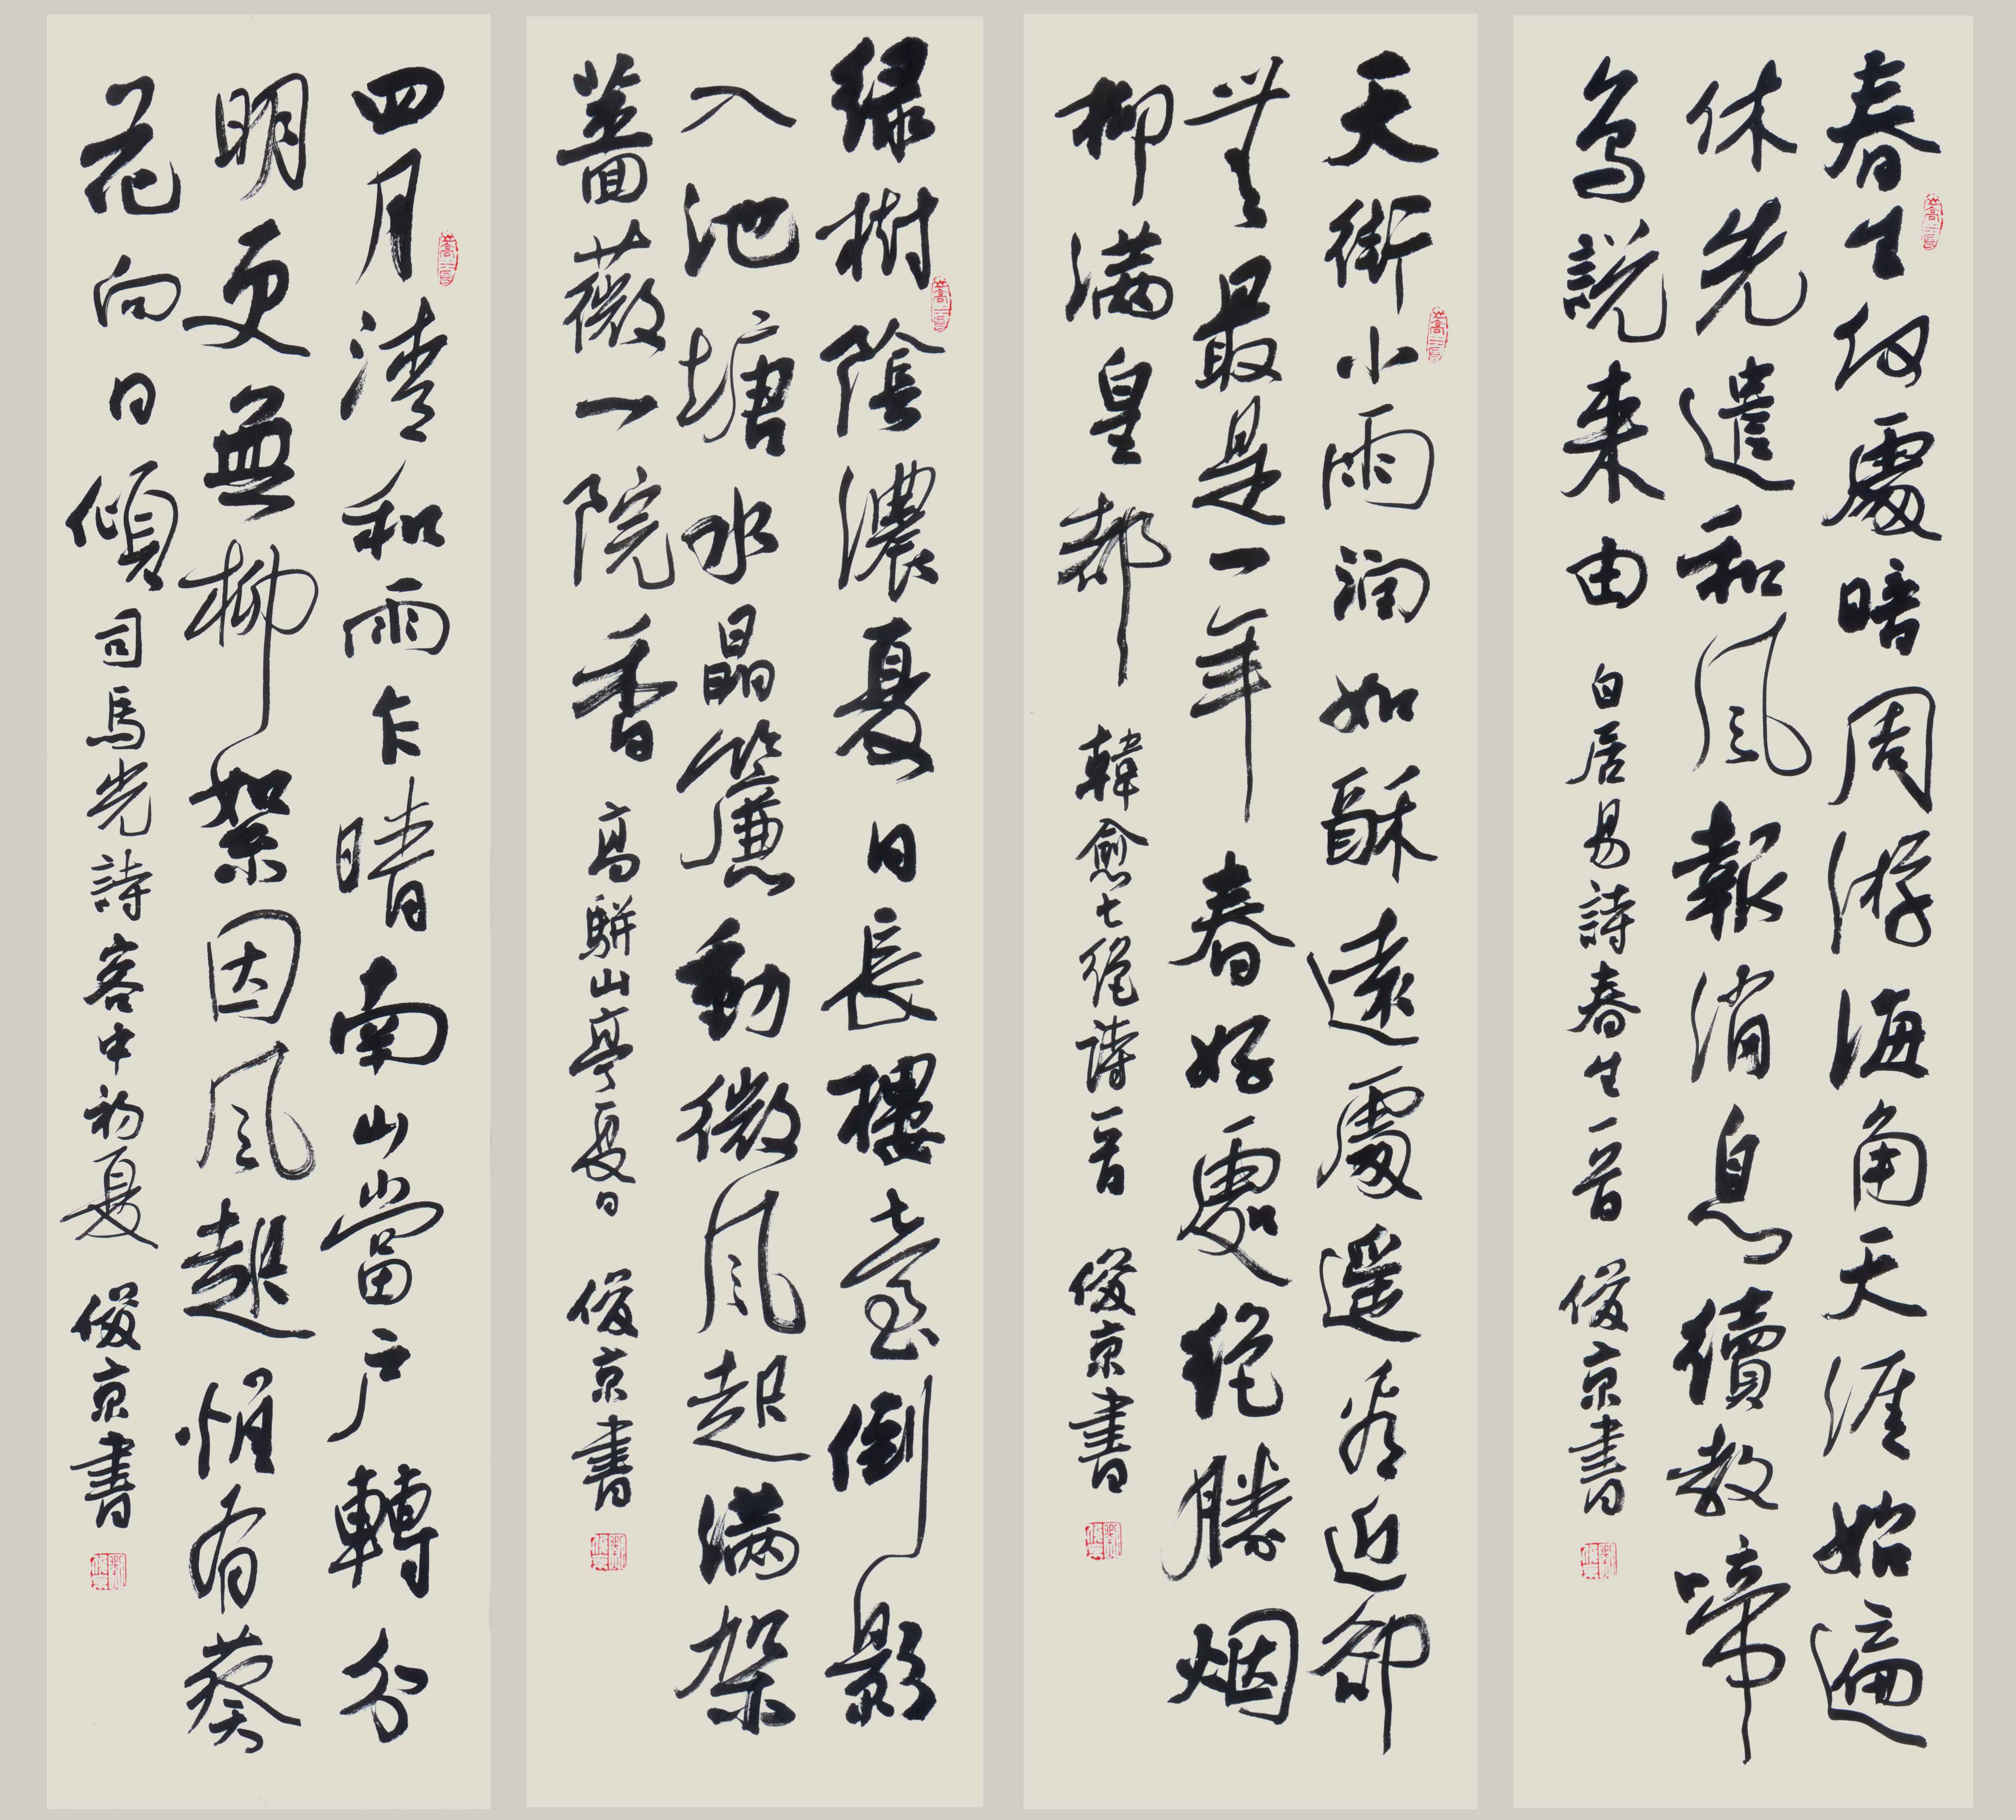 春生何處暗周游海角天涯始遍
休先遣和風報消息續教啼
鳥説来由 白居易詩春生一首 俊京書
天街小雨润如酥遠處遥看近卻
無最是一年春好處绝勝烟
柳满皇都 韓愈七绝詩一首 俊京書
绿樹陰濃夏日長樓臺倒影
入池塘水晶簾動微風起满架
薔薇一院香 高駢山亭夏日 俊京書
四月清和雨乍晴南山當户轉分
明更無柳絮因風起惟有葵
花向日傾 司馬光詩客中初夏 俊京書